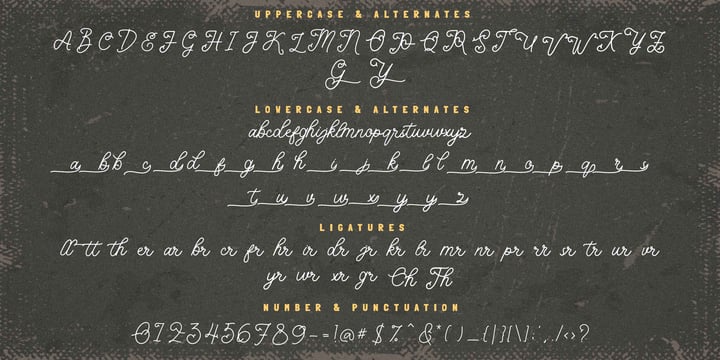 UPPERCASE & ALTERNATES
A B C D E F G H I J K L M N O P Q R S T U V W X Y Z
G Y
LOWERCASE & ALTERNATES
abcdefghijklmnopqrstuvwxyz
a b b c d d f g h h i j k l l m n o p q r s
t u v w x y y z
LIGATURES
tt th er ar br cr fr hr ir dr jr kr lr mr nr pr rr sr tr ur vr
yr wr xr gr Ch Th
NUMBER & PUNCTUATION
0123456789-=!@#$%^&*()_{|}[\]:',./<>?